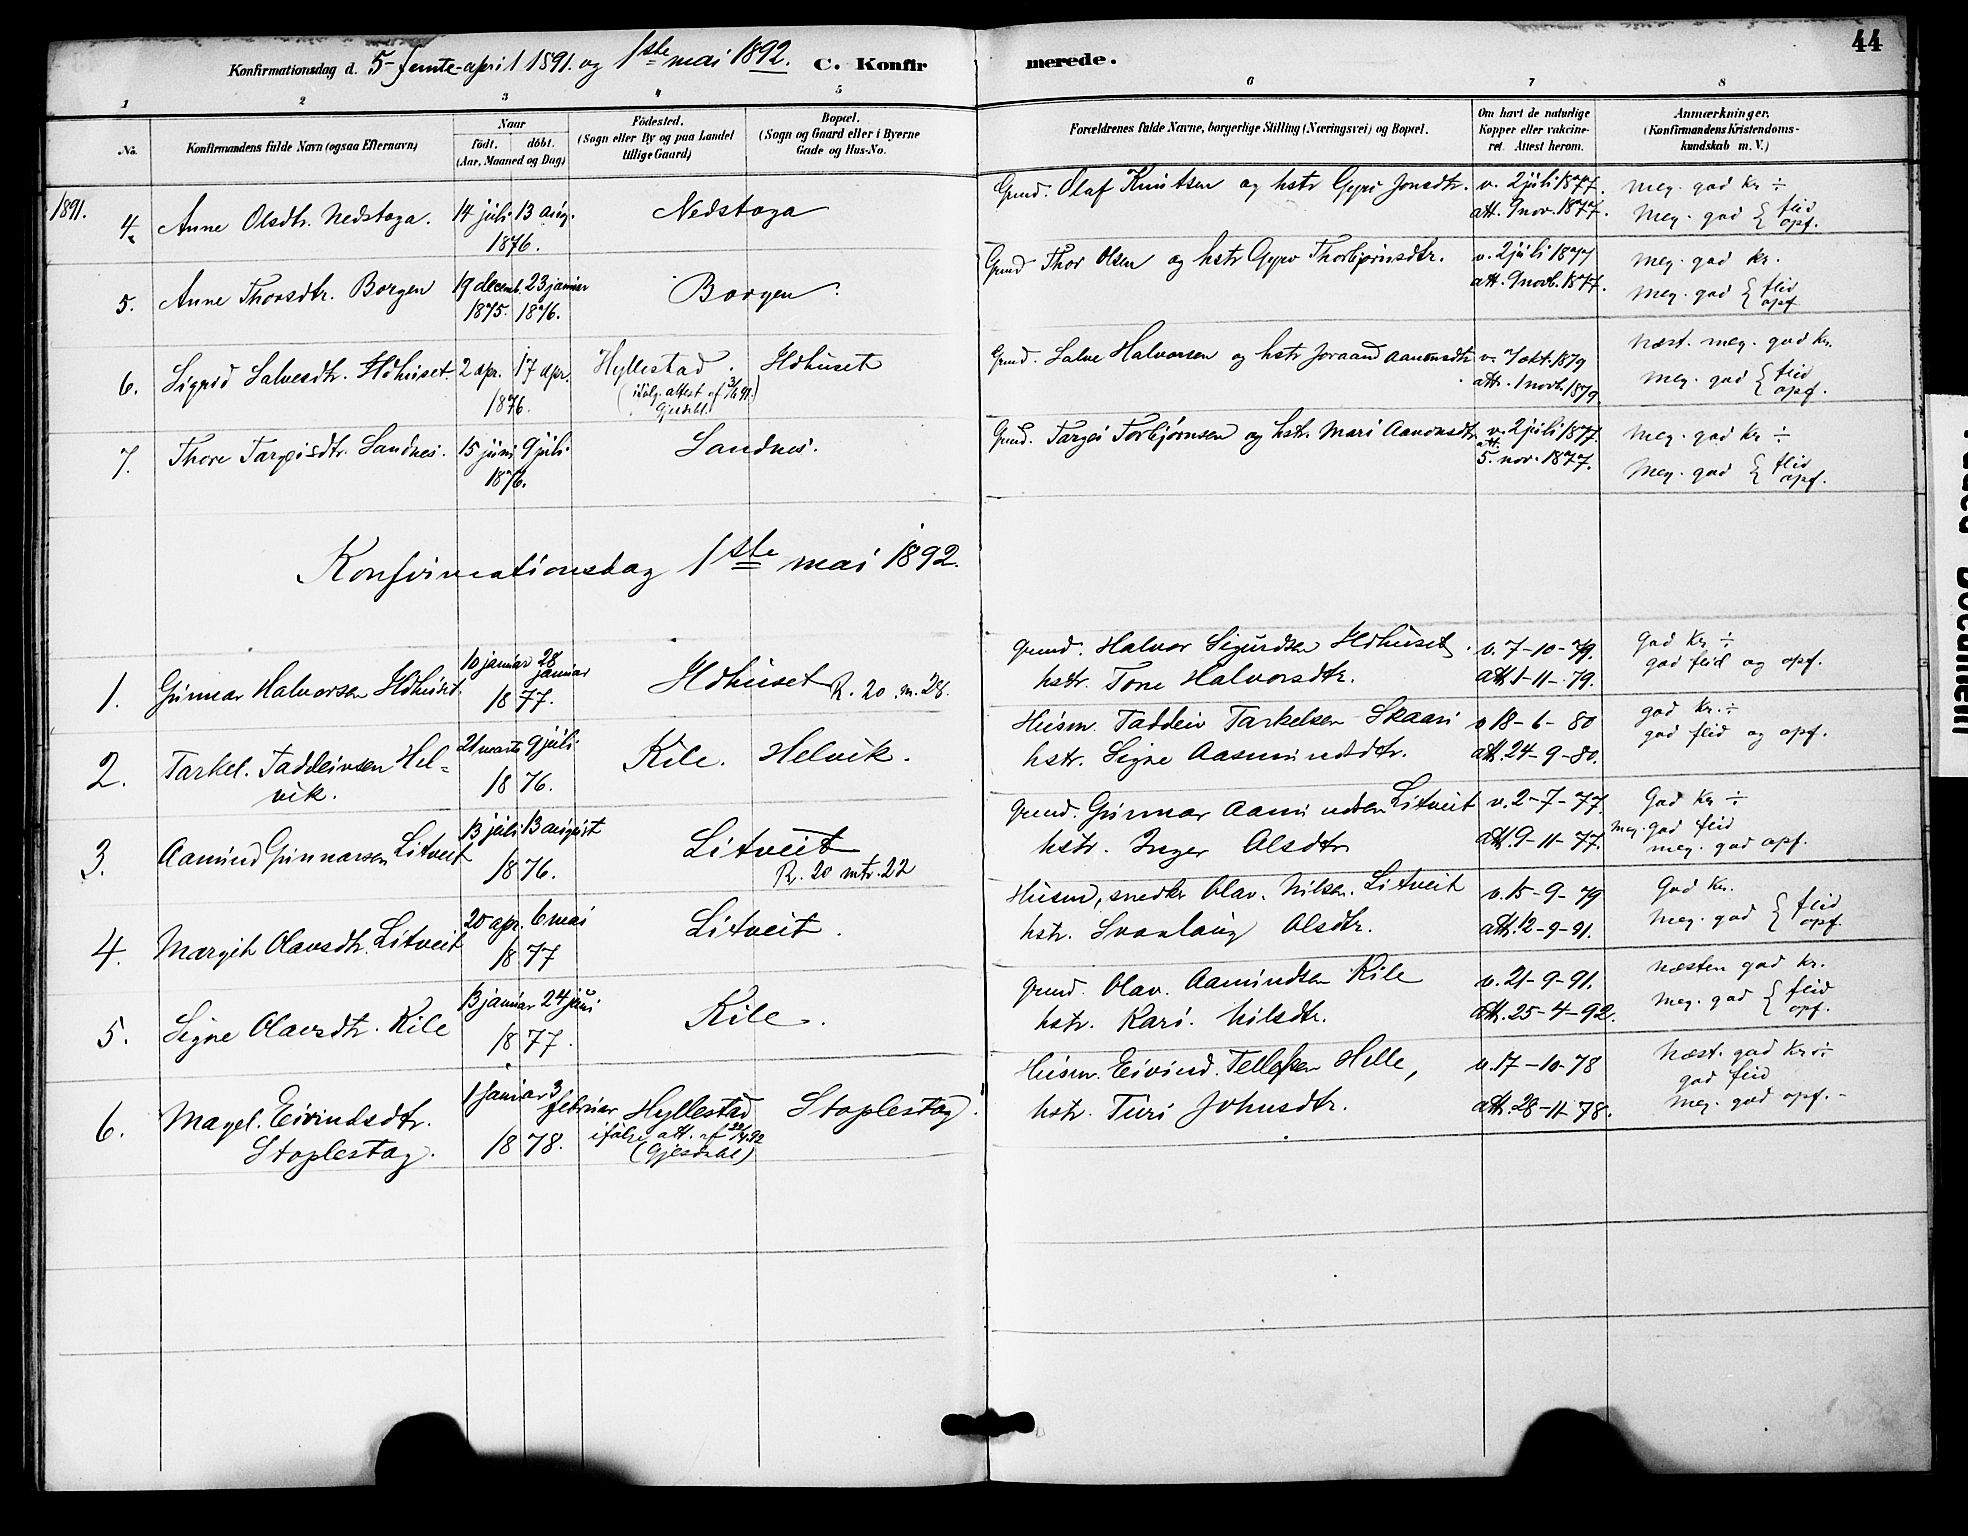 44
Konfirmationsdag d. 5- femte april 1891. og 1ste mai 1892. C. Konfirmerede.
1 2 3 4 5 6 7 8
No.
Konfirmandens fulde Navn (ogsaa Efternavn)
Naar
födt. döbt.
(Aar, Maaned og Dag)
Födested.
(Sogn eller By og paa Landet
tillige Gaard)
Bopæl.
(Sogn og Gaard eller i Byerne
Gade og Hus-No.
Forældrenes fulde Navne, borgerlige Stilling (Næringsvei) og Bopæl.
Om havt de naturlige
Kopper eller vakcine-
ret. Attest herom.
Anmærkninger.
(Konfirmandens Kristendoms-
kundskab m. V.)
1891.
4. Anne Olsdtr. Nedstoga. 14 juli 13 aug. 1876. Nedstoga Grmd. Olaf Knutsen og hstr Gyro Jonsdtr. v. 2 juli 1877. att. 9 nov. 1877. meg. god kr ÷ meg. god { flid opf.
5. Anne Thorsdtr. Borgen 19 decemb. 1875. 23 januar 1876. Borgen. Grmd Thor Olsen og hstr Gyro Thorbjørnsdtr. v. 2 juli 1877 att. 9 novb. 1877. meg. god kr. meg. god { flid opf
6. Sigrid Salvesdtr. Homhuset. 2 apr. 17 apr. 1876. Hyllestad. (ifølg. attest af 3/4 91.) Gjesdahl Grmd. Salve Halvorsen og hstr Joraand Aanonsdtr v. 7 okt. 1879 att. 1 novb. 1879. næst. meg. god kr. meg. god { flid opf.
7. Thore Targeisdtr. Sandnes. 15 juni 9 juli 1876. Sandnes. Grmd. Targei Torbjørnsen og hstr. Mari Aanonsdtr v. 2 juli 1877. att. 5. nov. 1877. meg. god kr ÷ meg. god { flid opf.
Konfirmationsdag 1ste mai 1892.
1. Gunnar Halvorsen 10 januar 28 januar 1877. R. 20 m. 28. Grmd. Halvor Sigurdsen hstr. Tone Halvorsdtr. v. 7-10-79. att 1-11-79. god kr ÷ god flid og opf.
2. Tarkel. Taddeivsen Hel-
vik. 21 marts 9 juli 1876. Kile. Helvik. Husm. Taddeiv Tarkelsen Skaari hstr. Signe Aasmundsdtr. v 18-6-80 att. 24-9-80. god kr. ÷ god flid og opf.
3. Aamund Gunnarsen Litveit 13 juli 13 august 1876. Litveit R. 20 mtr. 22 Grmd. Gunnar Aamundsen Litveit hstr. Inger Olsdtr v. 2-7-77. att. 9-11-77. God kr ÷ meg. god flid meg. god opf.
4. Margit Olavsdtr. Litveit 20 apr. 6 mai 1877 Litveit. Husm, snedker Olav. Nilsen. Litveit hstr. Svanlaug Olsdtr. v. 15-9-79 att. 12-9-91. God kr. meg. god { flid opf.
5. Signe Olavsdtr. Kile 13 januar 24 juni 1877. Kile. Grmd. Olav. Aamundsen Kile hstr. Kari. Nilsdtr. v. 21-9-91. att. 25-4-92. næsten god kr. meg. god { flid opf.
6. Magel. Eivindsdtr.
Stoplestog. 1 januar 3 februar 1878. Hyllestad ifølge att. af 22/4 92 (Gjesdahl) Stoplestog. Husm. Eivind. Tellefsen Helle, hstr. Turi Johnsdtr. v. 17-10-78 att. 28-11-78. næst. god kr. ÷ god flid meg. god opf.